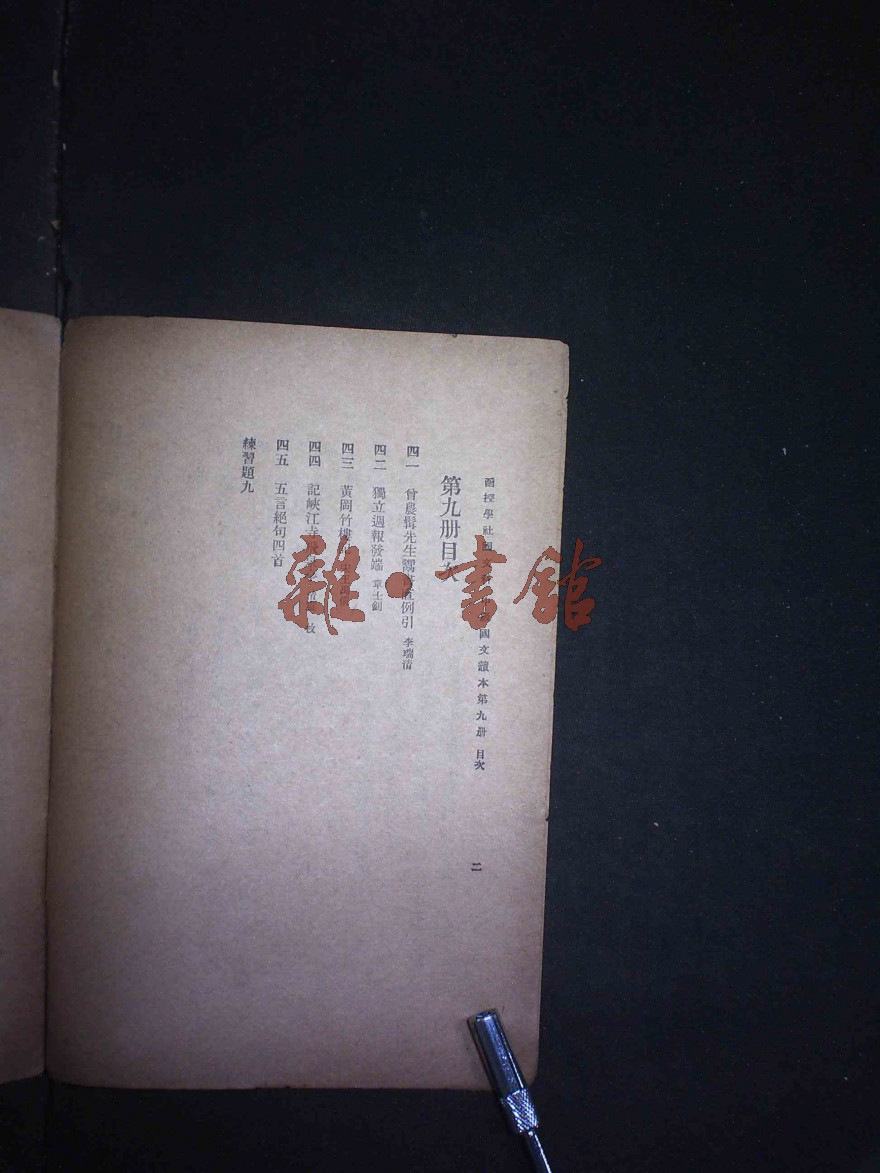 函授學社國文科國文讀本第九册 目次
二
第九册目次
四一 曾農髯先生鬻書直例引 李瑞清
四二 獨立週報發端 章士釗
四三 黃岡竹樓
四四 記峽江寺飛 枚
四五 五言絕句四首
練習題九
雜·書館